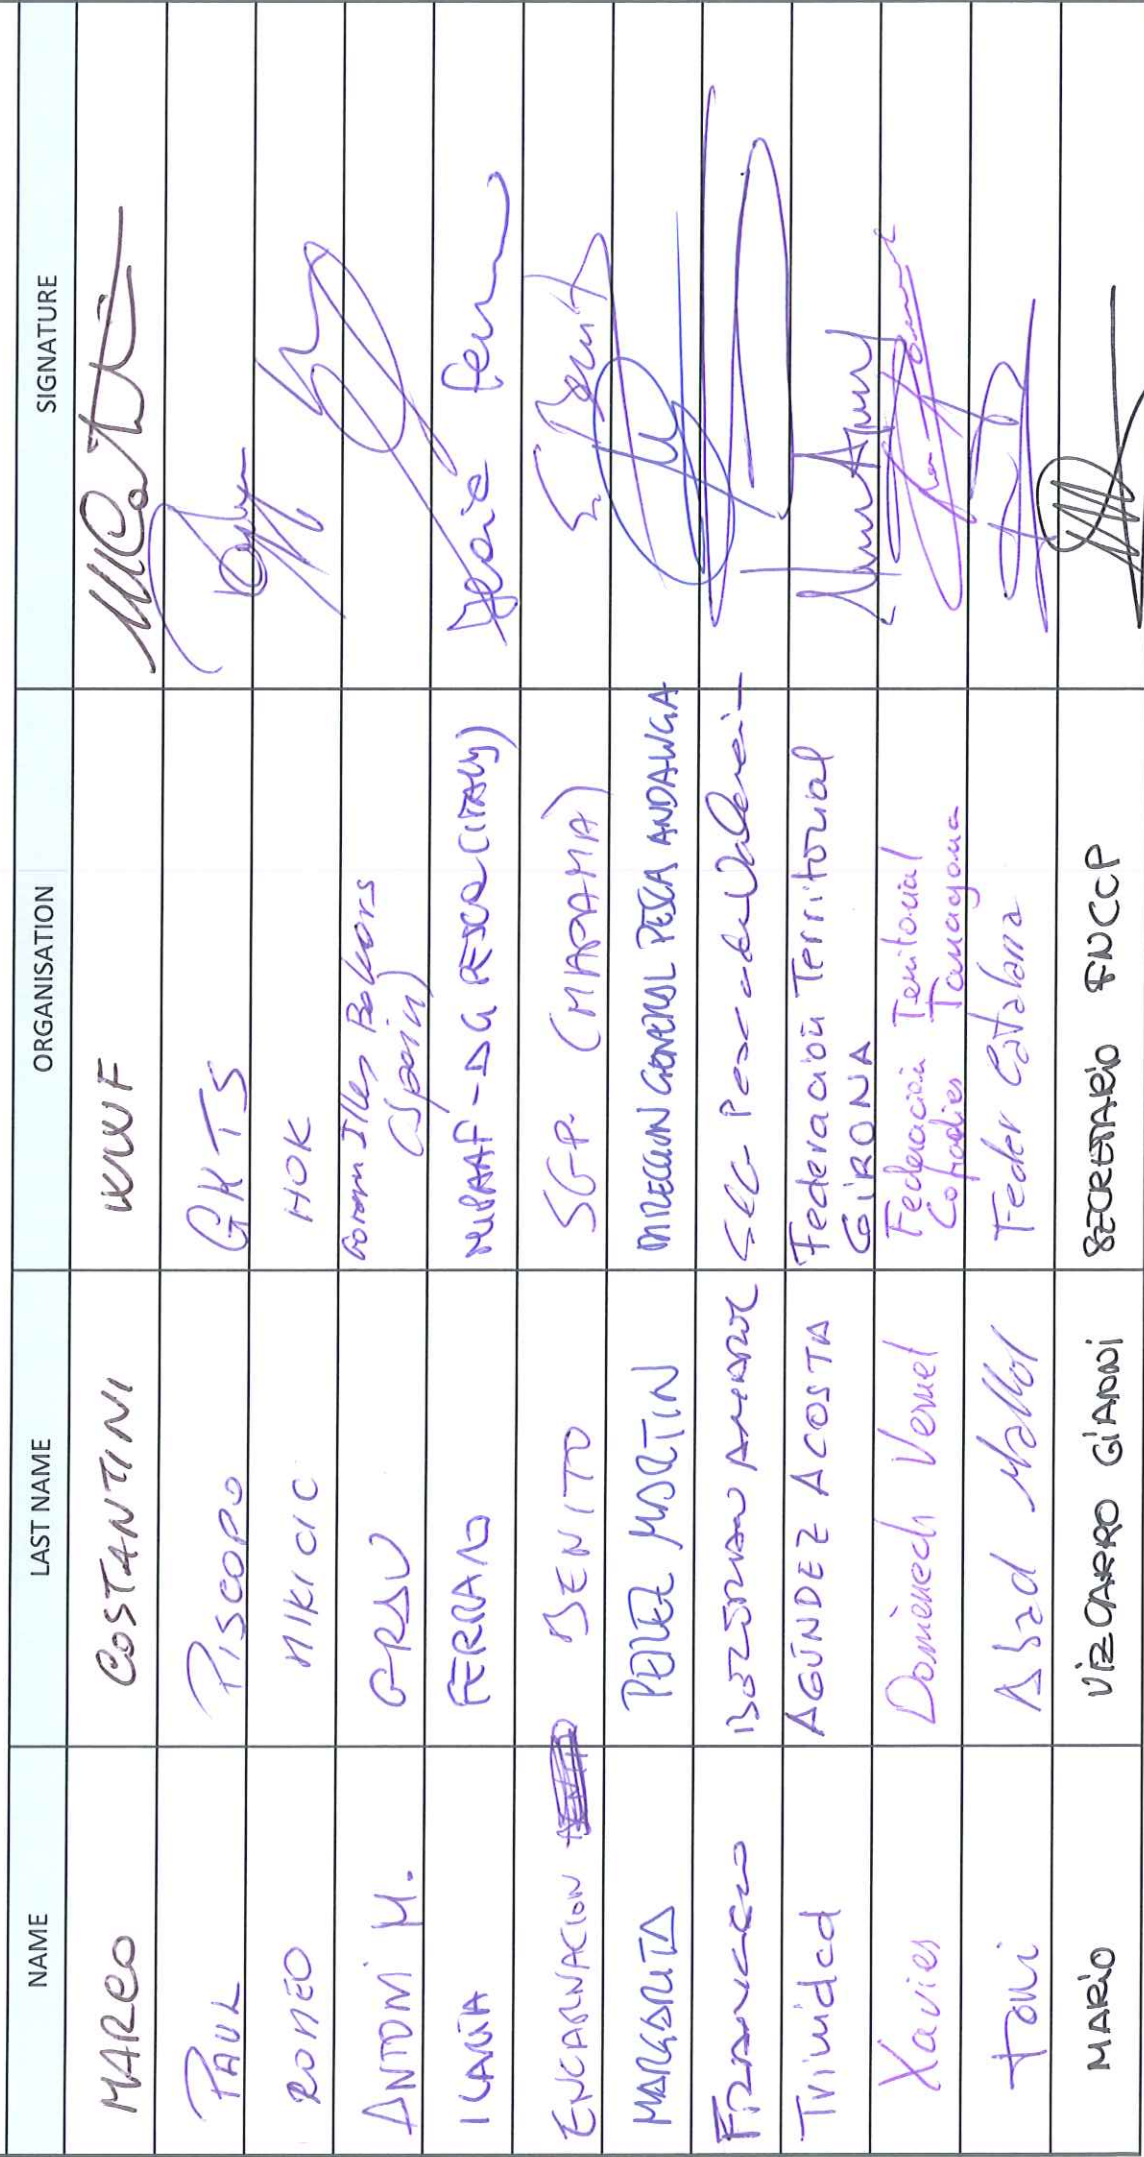 NAME LAST NAME ORGANISATION SIGNATURE
MARCO COSTANTINI WWF
PAUL PISCOPO GKTS
ROMEO MIKICIC HOK
ANTONI M. GRAU Govern Illes Balears
(Spain)
ILARIA FERRARO MIPAAF-DG PESCA (ITALY)
ENCARNACION BENITO SGP. (MAPAMA)
MARGARITA PEREZ MARTIN DIRECCION GENERAL PESCA
FRANCISCO
Trinidad AGÚNDEZ ACOSTA Federación Territorial
GIRONA
Xavier Domènech Vernet Federación Territorial
Cofradies Tarragona
Toni Abad Mallol Feder Catalana
MARIO VIZCARRO GIANNI SECRETARIO FNCCP